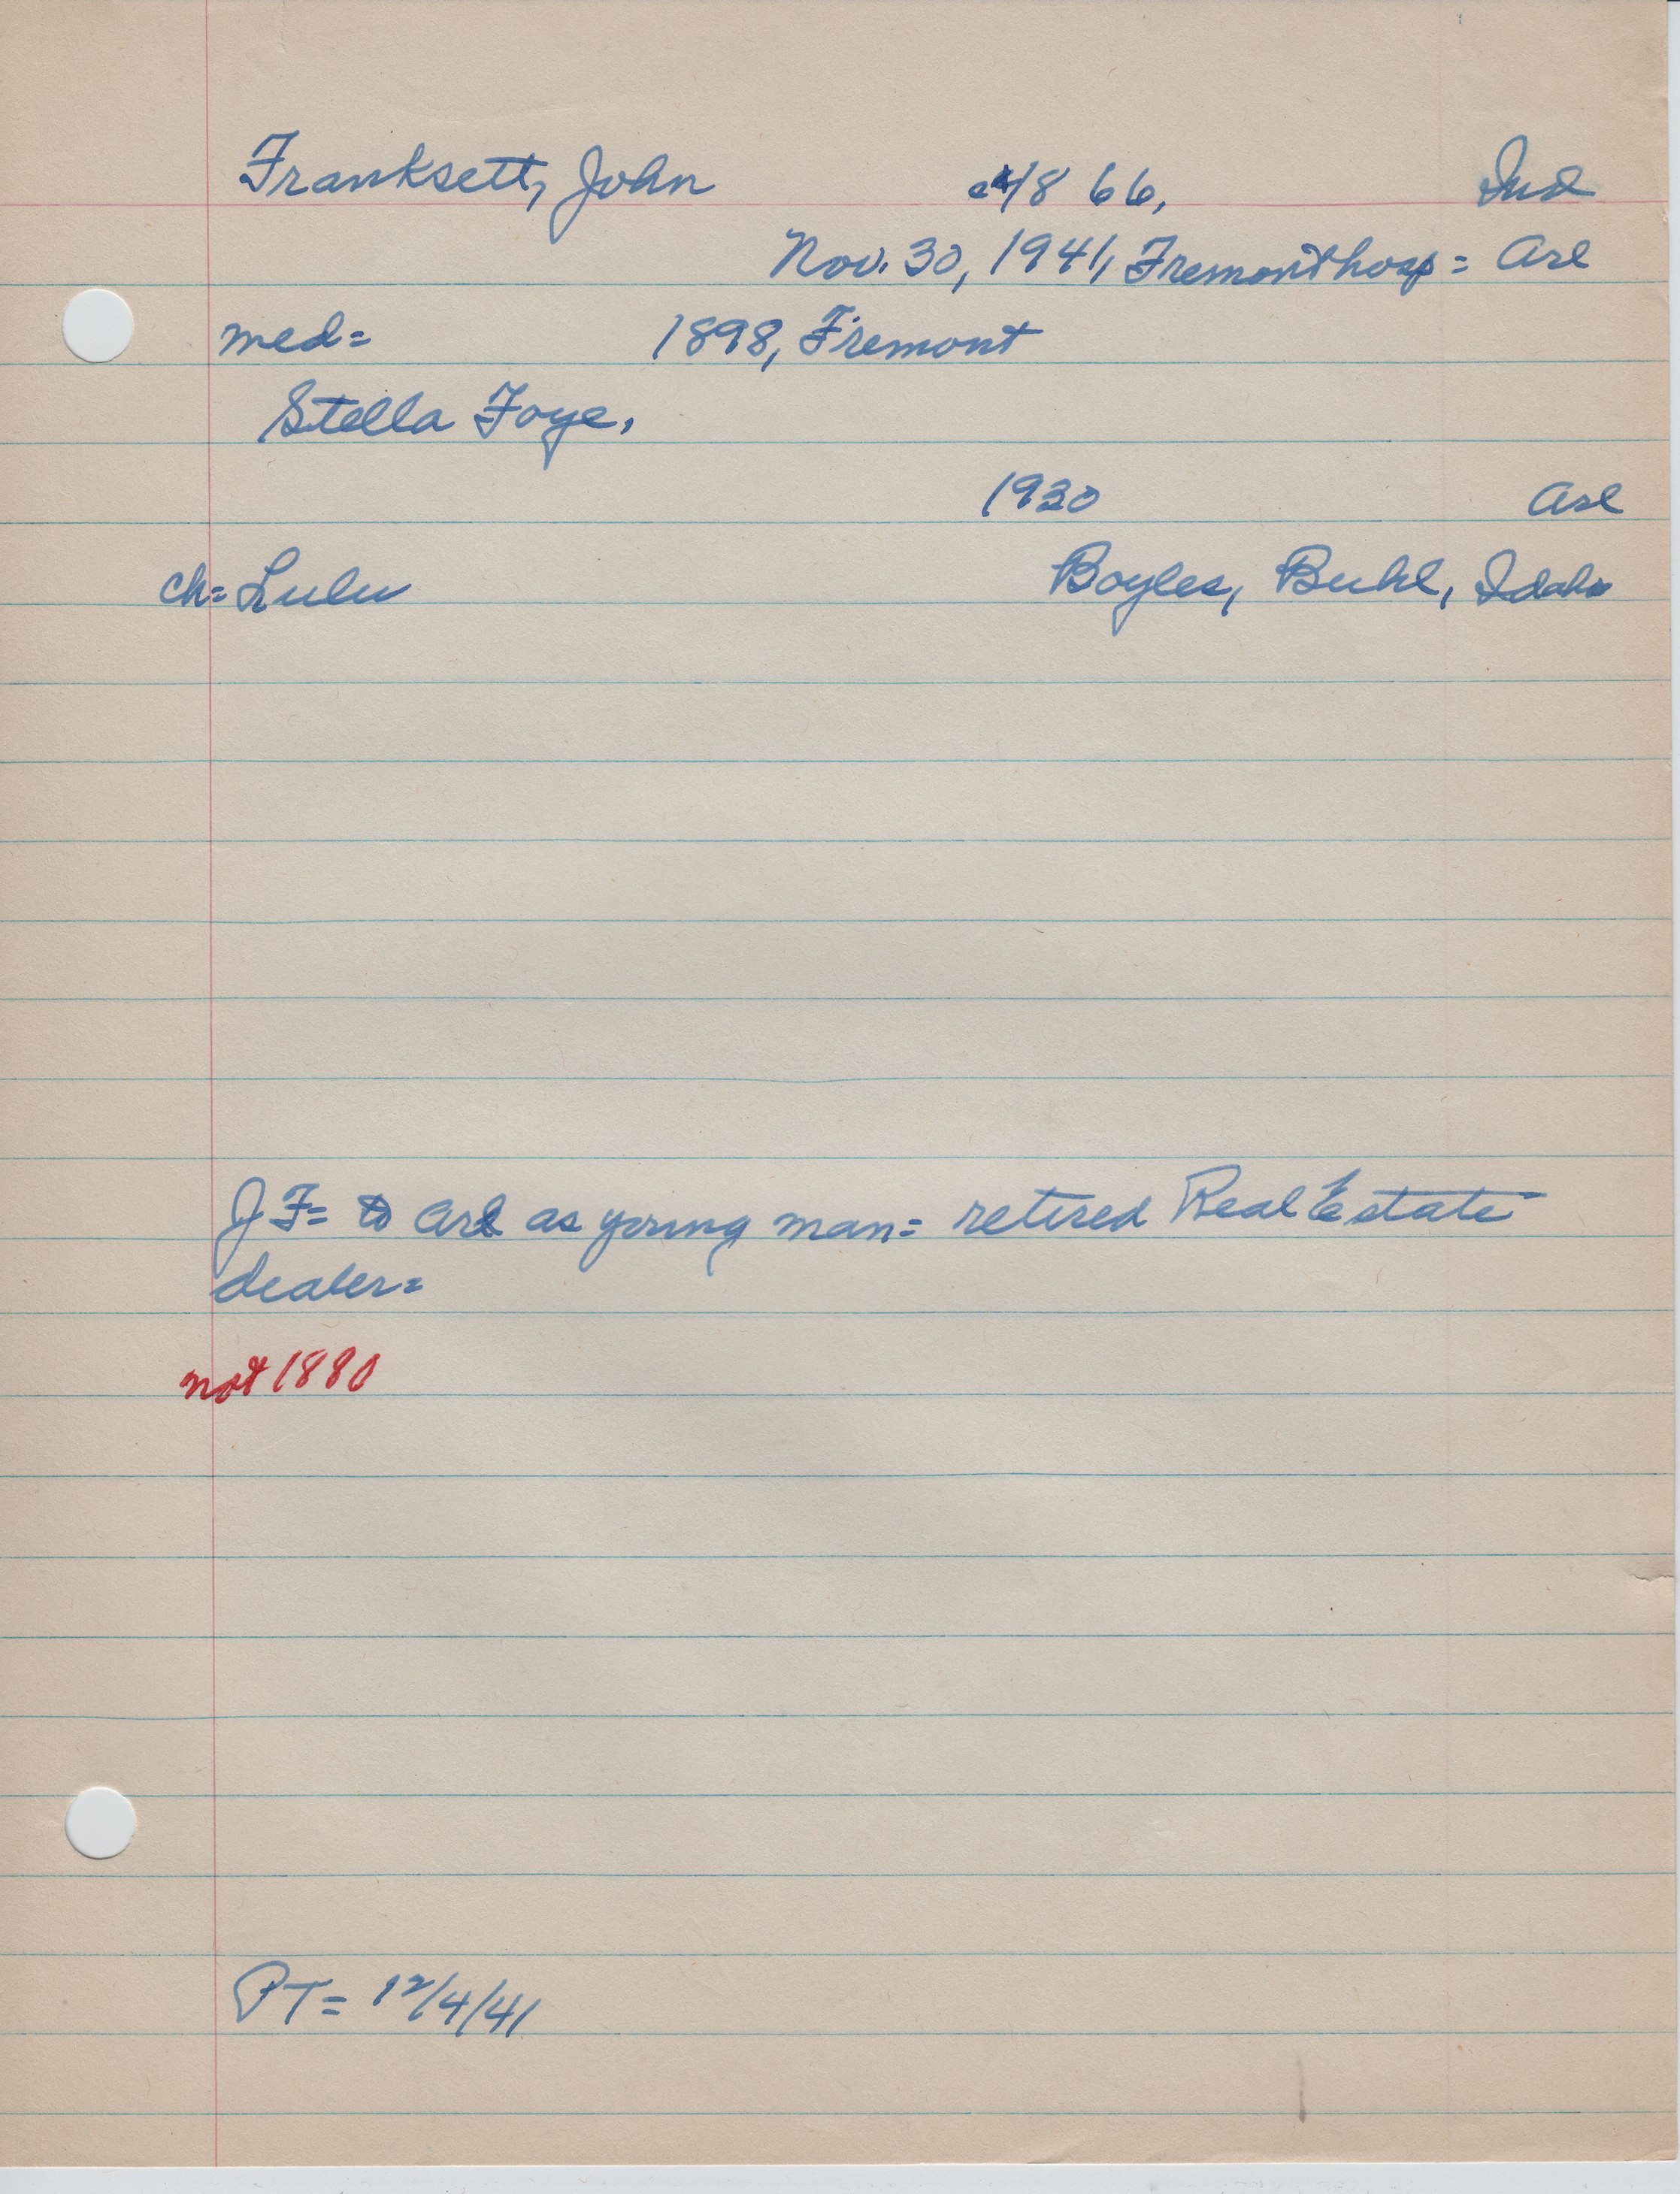 Franksett, John ca 1866, Ind
Nov. 30, 1941, Fremont hosp = Arl
med= 1898, Fremont
Stella Foye,
1930 Arl
ch= Lulu Boyles, Buhl, Idaho
J F= to Arl as young man= retired Real Estate
dealer=
not 1880
PT= 12/4/41